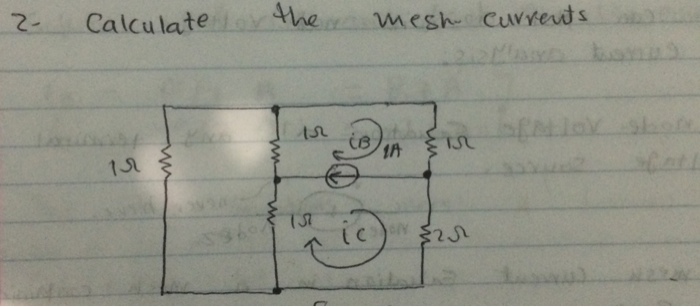 2- Calculate the mesh currents
1Ω iB 1A 1Ω
1Ω
1Ω iC 2Ω